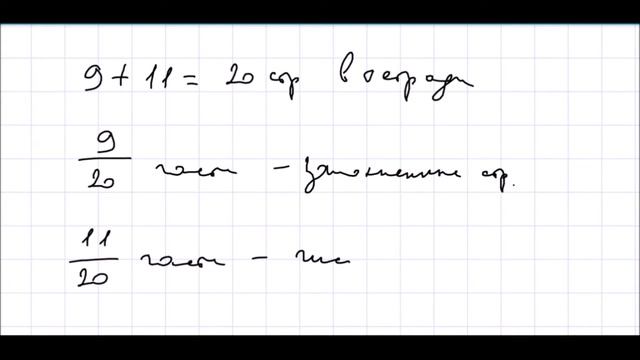 9 + 11 = 20 стр в тетради
9/20 части - заполненные стр.
11/20 части - чис